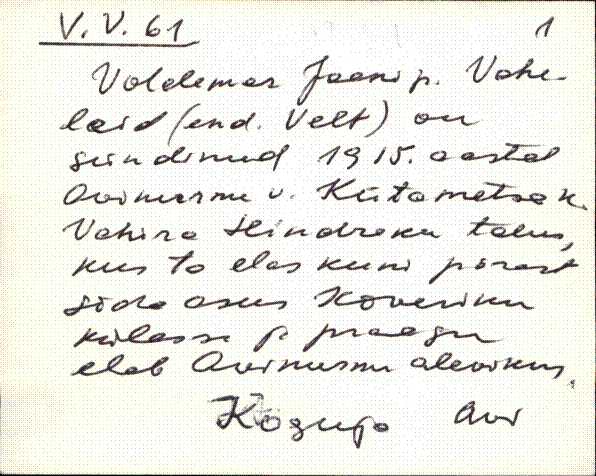 V. V. 61 1
Voldemar Jaani p. Vahe-
laid (end. Velt) on
sündinud 1915. aastal
Avinurme v. Kiitametsa k.
Vahira Hindreku talus,
kus ta elas kuni pärast
sõda asus Koveriku
külasse ja praegu
elab Avinurme alevikus.
Koguja Avi